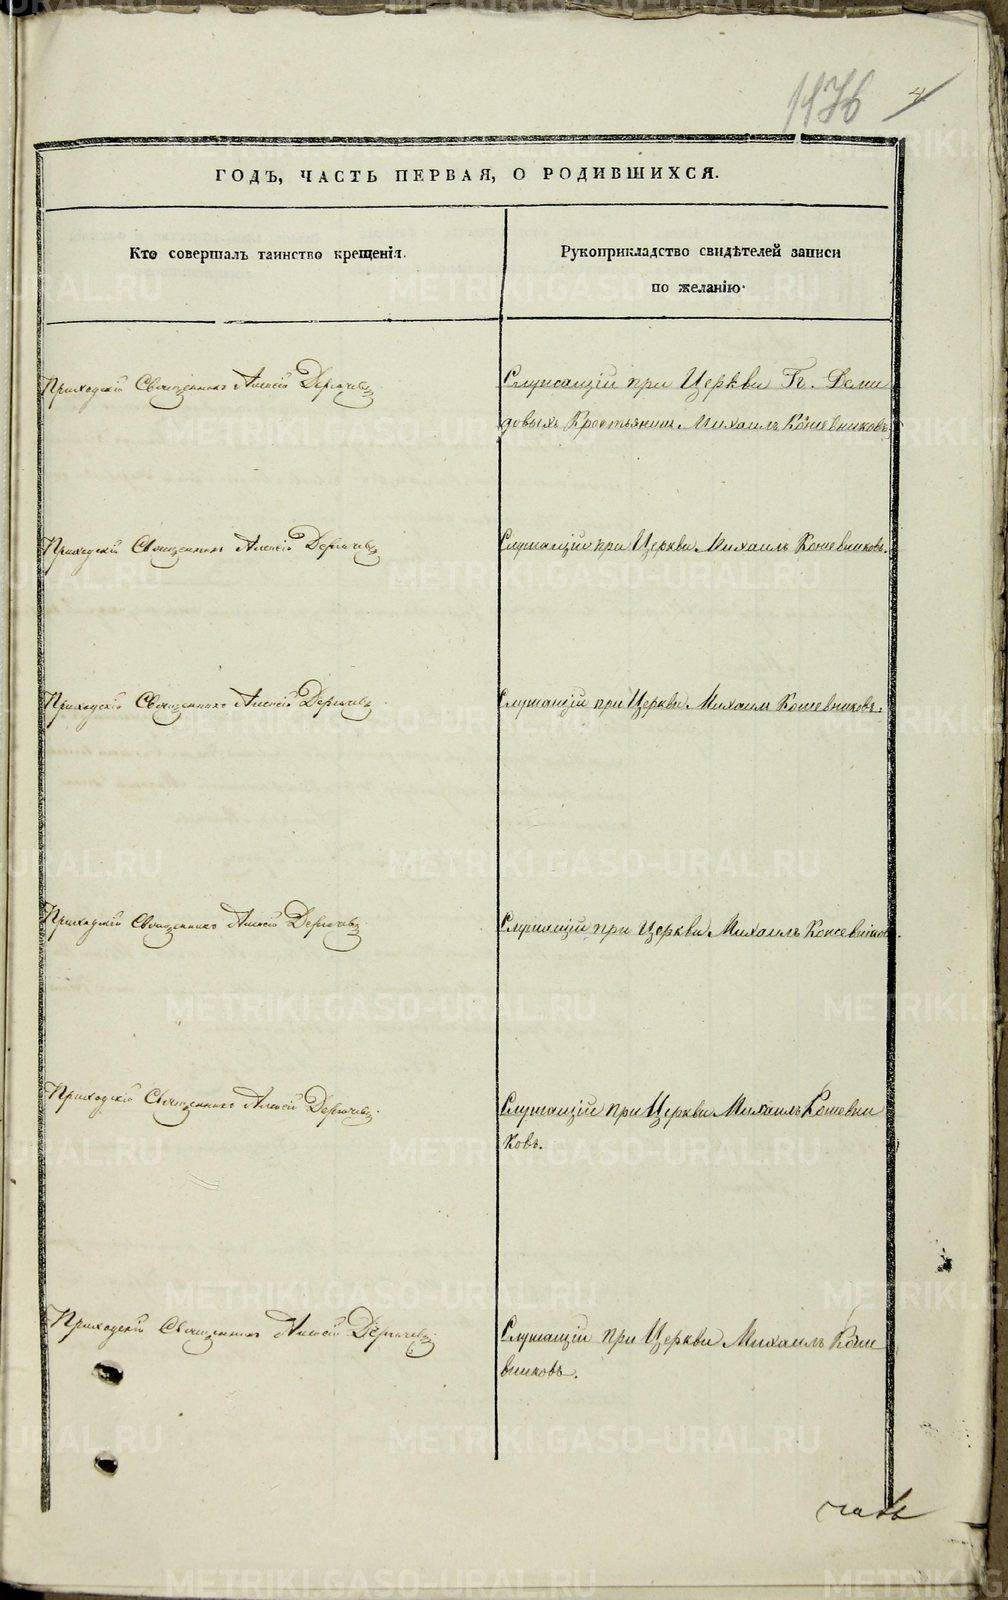 1176 4
ГОДЪ, ЧАСТЬ ПЕРВАЯ, О РОДИВШИХСЯ.
Кто совершалъ таинство крещенія.
Рукоприкладство свидѣтелей записи
по желанію.
Приходскій Священникъ Алексій Дергачевъ
Служащій при Церкви Гг. Деми
довыхъ Крестьянинъ Михаилъ Кожевниковъ
Приходскій Священникъ Алексій Дергачевъ
Служащій при Церкви Михаилъ Кожевниковъ.
Приходскій Священникъ Алексій Дергачевъ
Служащій при Церкви Михаилъ Кожевниковъ.
Приходскій Священникъ Алексій Дергачевъ
Служащій при Церкви Михаилъ Кожевниковъ.
Приходскій Священникъ Алексій Дергачевъ
Служащій при Церкви Михаилъ Кожевни
ковъ.
Приходскій Священникъ Алексій Дергачевъ
Служащій при Церкви Михаилъ Коже
вниковъ.
METRIKI.GASO-URAL.RU